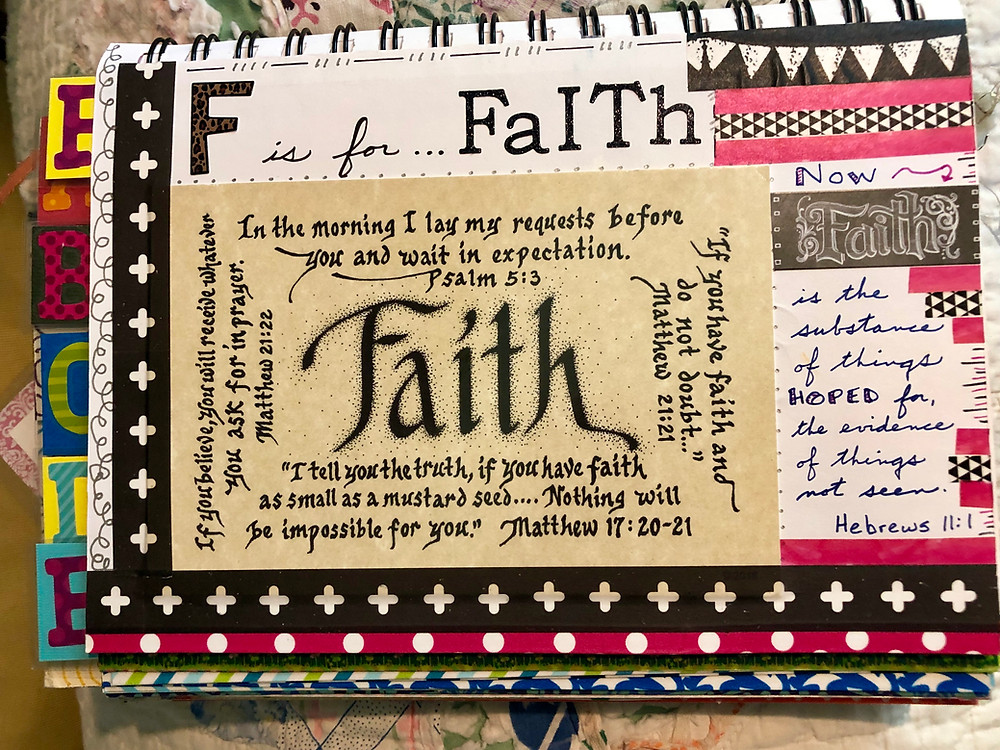 F is for ... FaITh
In the morning I lay my requests before
you and wait in expectation.
Psalm 5:3
If you believe, you will receive whatever
you ask for in prayer.
Matthew 21:22
Faith
"If you have faith and
do not doubt..."
Matthew 21:21
"I tell you the truth, if you have faith
as small as a mustard seed.... Nothing will
be impossible for you." Matthew 17:20-21
Now
Faith
is the
substance
of things
HOPED for,
the evidence
of things
not seen.
Hebrews 11:1
B
E